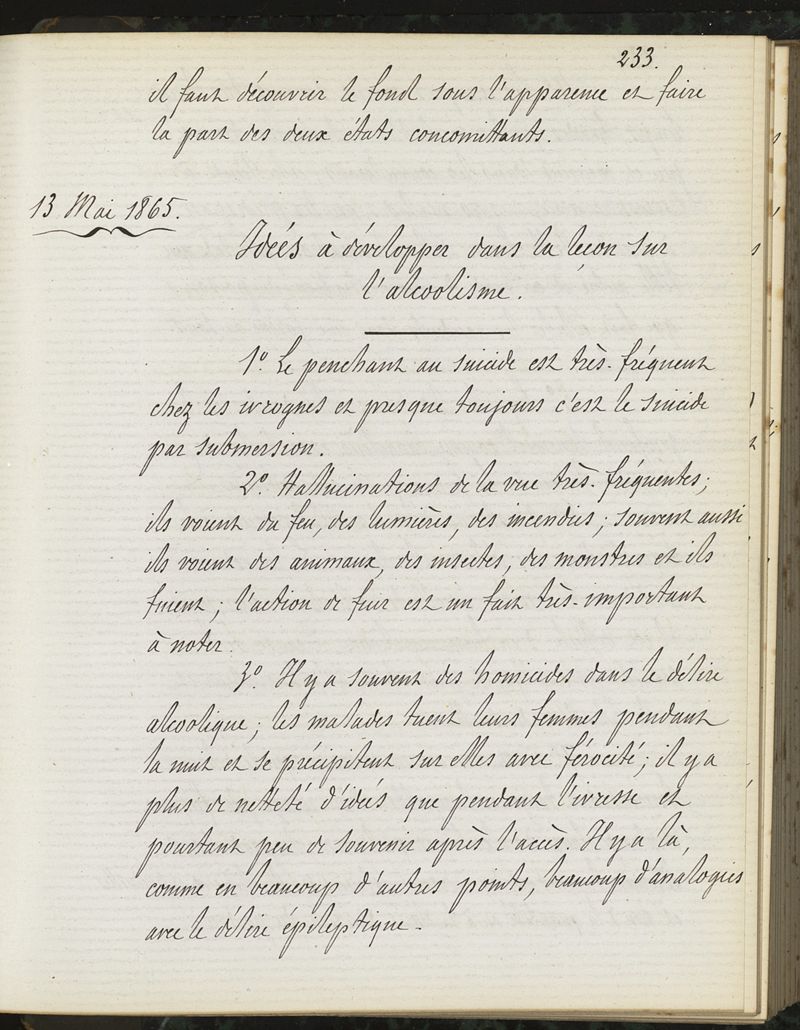 233.
il faut découvrir le fond sous l'apparence et faire
la part des deux états concomittants.
13 Mai 1865.
Idées à développer dans la leçon sur
l'alcoolisme.
1º. Le penchant au suicide est très-fréquent
chez les ivrognes et presque toujours c'est le suicide
par submersion.
2º. Hallucinations de la vue très-fréquentes;
ils voient du feu, des lumières, des incendies; souvent aussi
ils voient des animaux, des insectes, des monstres et ils
fuient; l'action de fuir est un fait très-important
à noter.
3º. Il y a souvent des homicides dans le délire
alcoolique; les malades tuent leurs femmes pendant
la nuit et se précipitent sur elles avec férocité; il y a
plus de netteté d'idées que pendant l'ivresse et
pourtant peu de souvenir après l'accès. Il y a là,
comme en beaucoup d'autres points, beaucoup d'analogies
avec le délire épileptique.